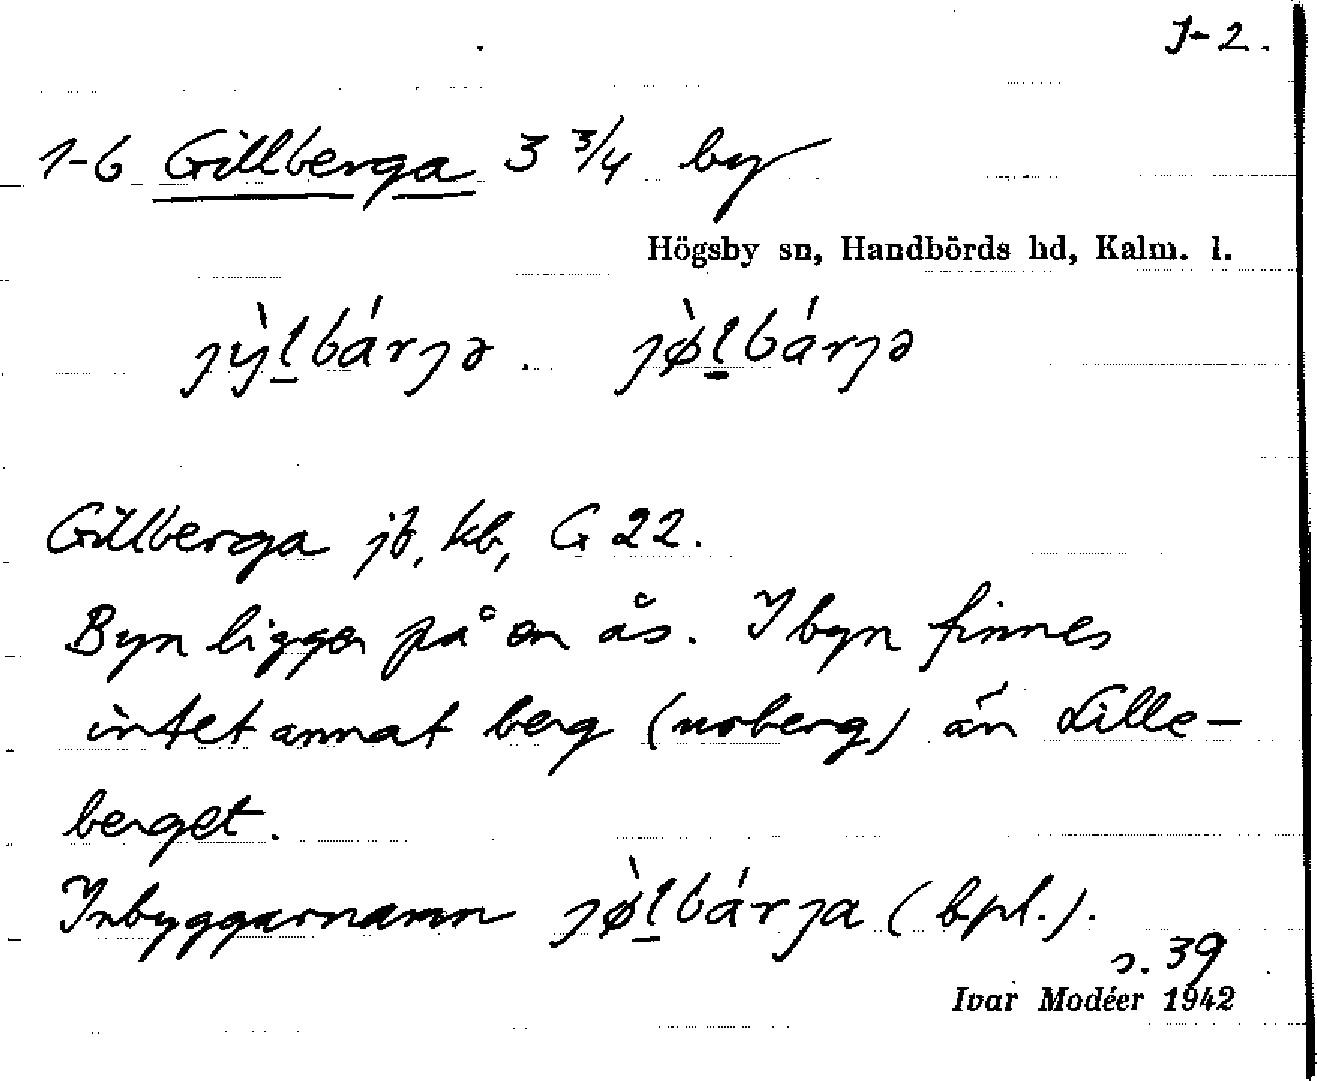 J-2.
1-6 Gillberga 3 3/4 by
Högsby sn, Handbörds hd, Kalm. l.
ȷỳl̠bárȷə . ȷø̀l̠bárȷə
Gillberga jb, kb, G 22.
Byn ligger på en ås. I byn finnes
intet annat berg (uroberg) än Lille-
berget.
Inbyggarnamn ȷø̀l̠bárȷa (b.pl.).
s. 39
Ivar Modéer 1942